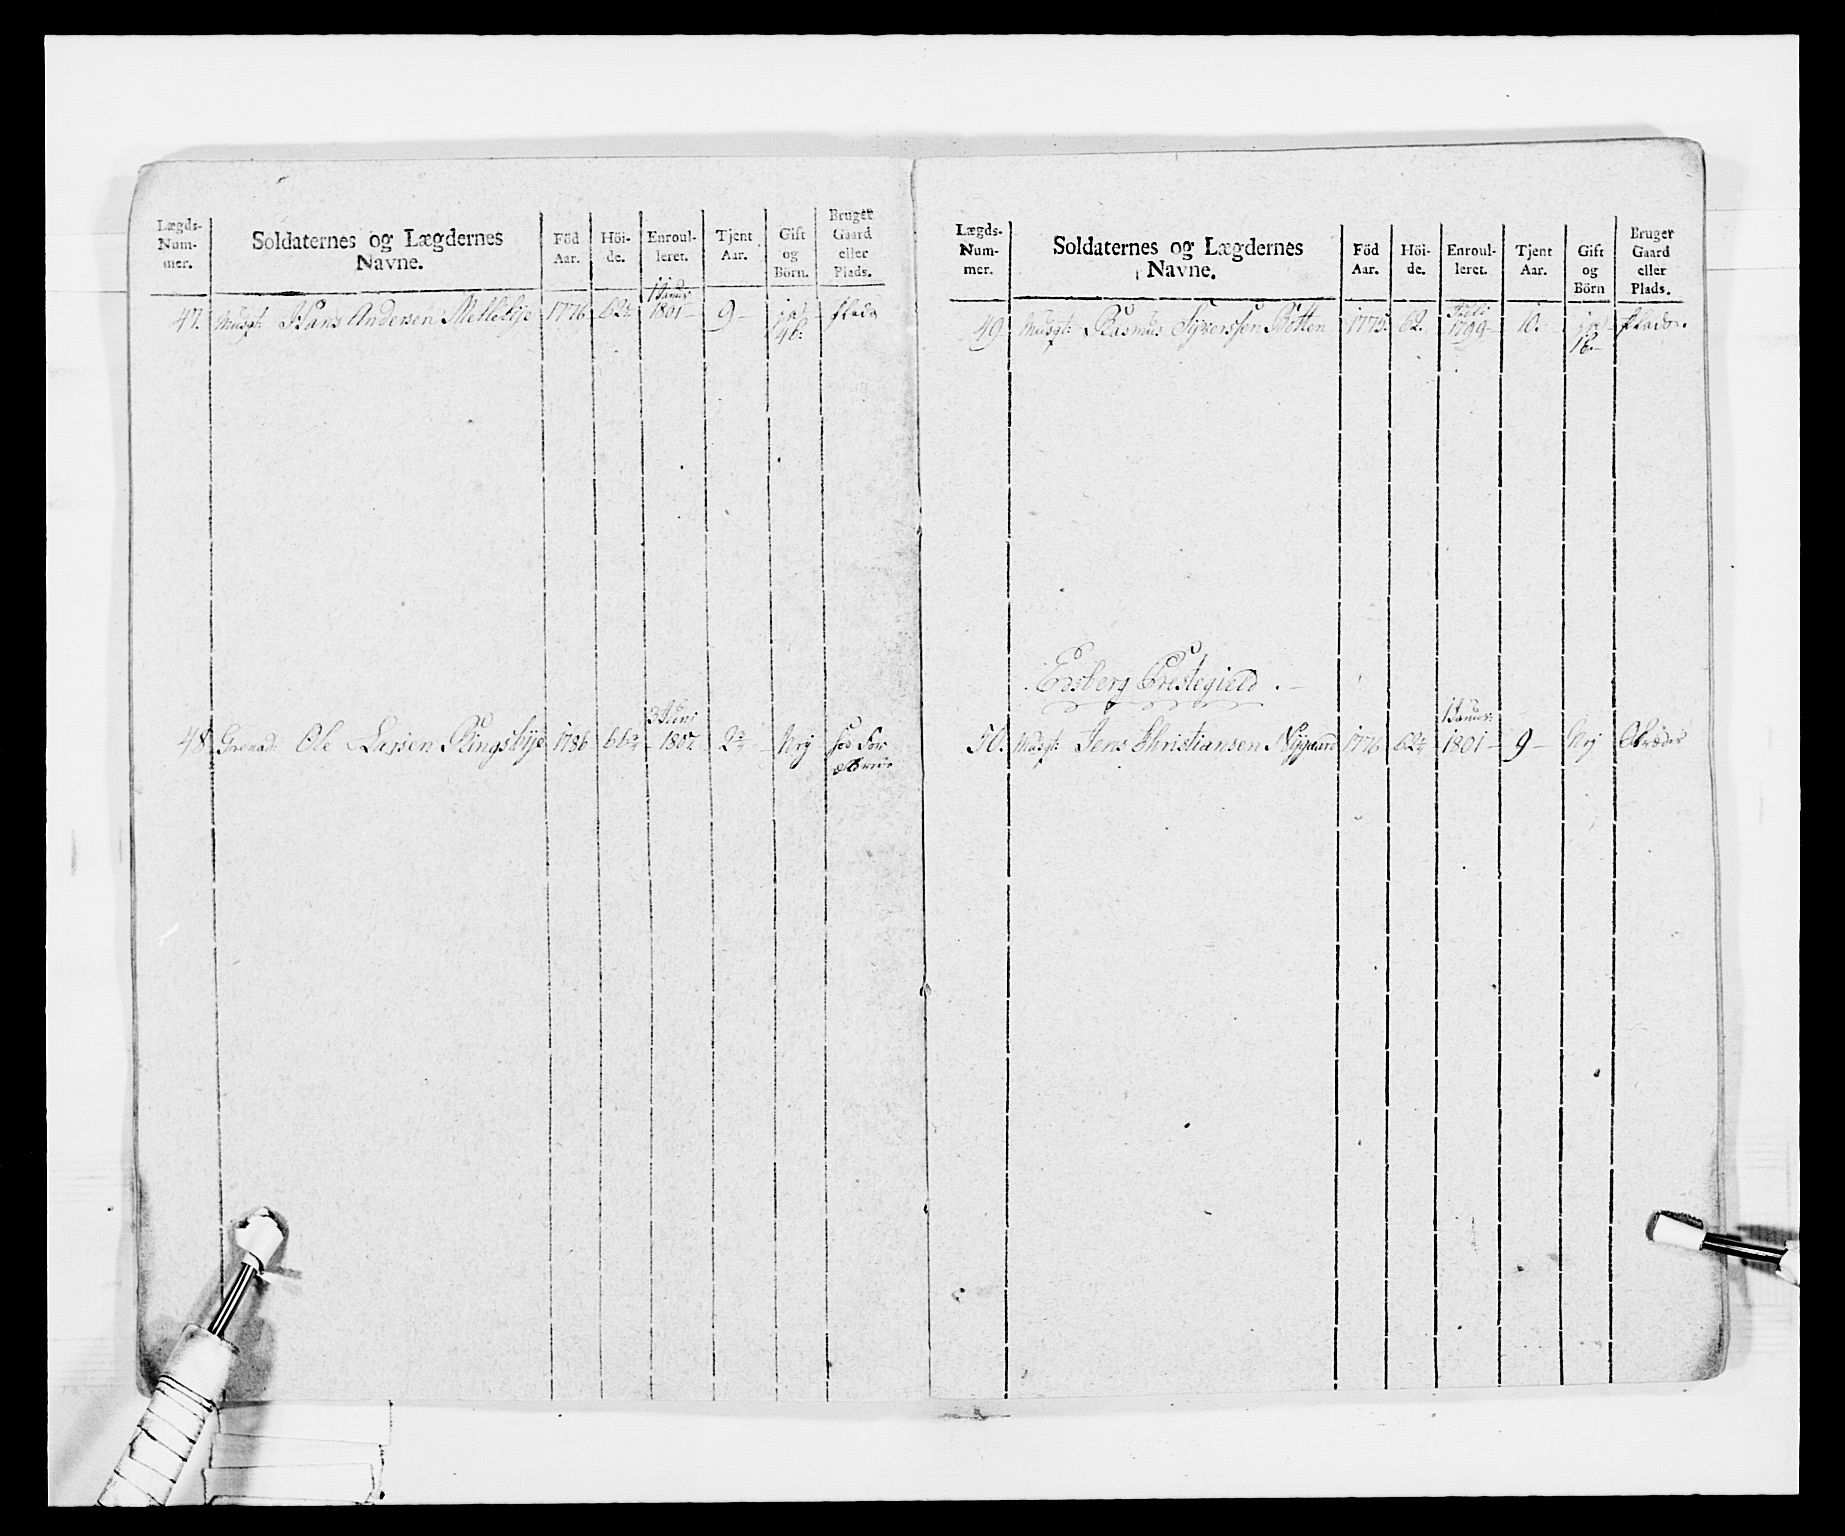 Lægds-
Num-
mer.
Soldaternes og Lægdernes
Navne.
Föd
Aar.
Höi-
de.
Enroul-
leret.
Tjent
Aar.
Gift
og
Börn.
Bruger
Gaard
eller
Plads.
47. Musqt: Hans Andersen 1776 62½ 1 Janur 1801 9 ja 4b. Plads
48. Grenad: Ole Larsen Ringsbye 1786 3 Juni 1807 2¾ Nej hos For
Lægds-
Num-
mer.
Soldaternes og Lægdernes
Navne.
Föd
Aar.
Höi-
de.
Enroul-
leret.
Tjent
Aar.
Gift
og
Börn
Bruger
Gaard
eller
Plads.
49. Musqt: Rasmus Syversen Botten 1775 62. 1799 10. ja 1b. Plads.
Edsberg Prestegield.
50. Musqt: Jens Christiansen Nygaard 1776 1 Janur: 1801 9 Nej